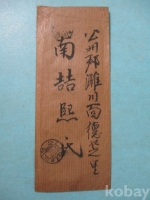 公州郡灘川面德芝里
南喆熙氏
kobay